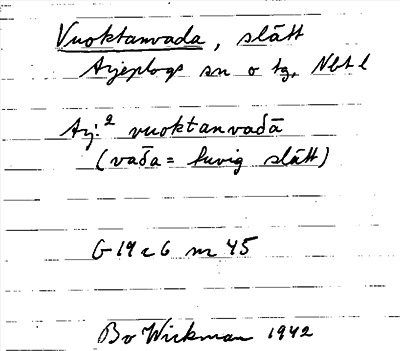 Vuoktanvada, slätt
Arjeplogs sn o tg, Nbt l
Arj.² vuoktanvađā
(vađa = huvig slätt)
G 19 c 6 nr 45
Bo Wickman 1942